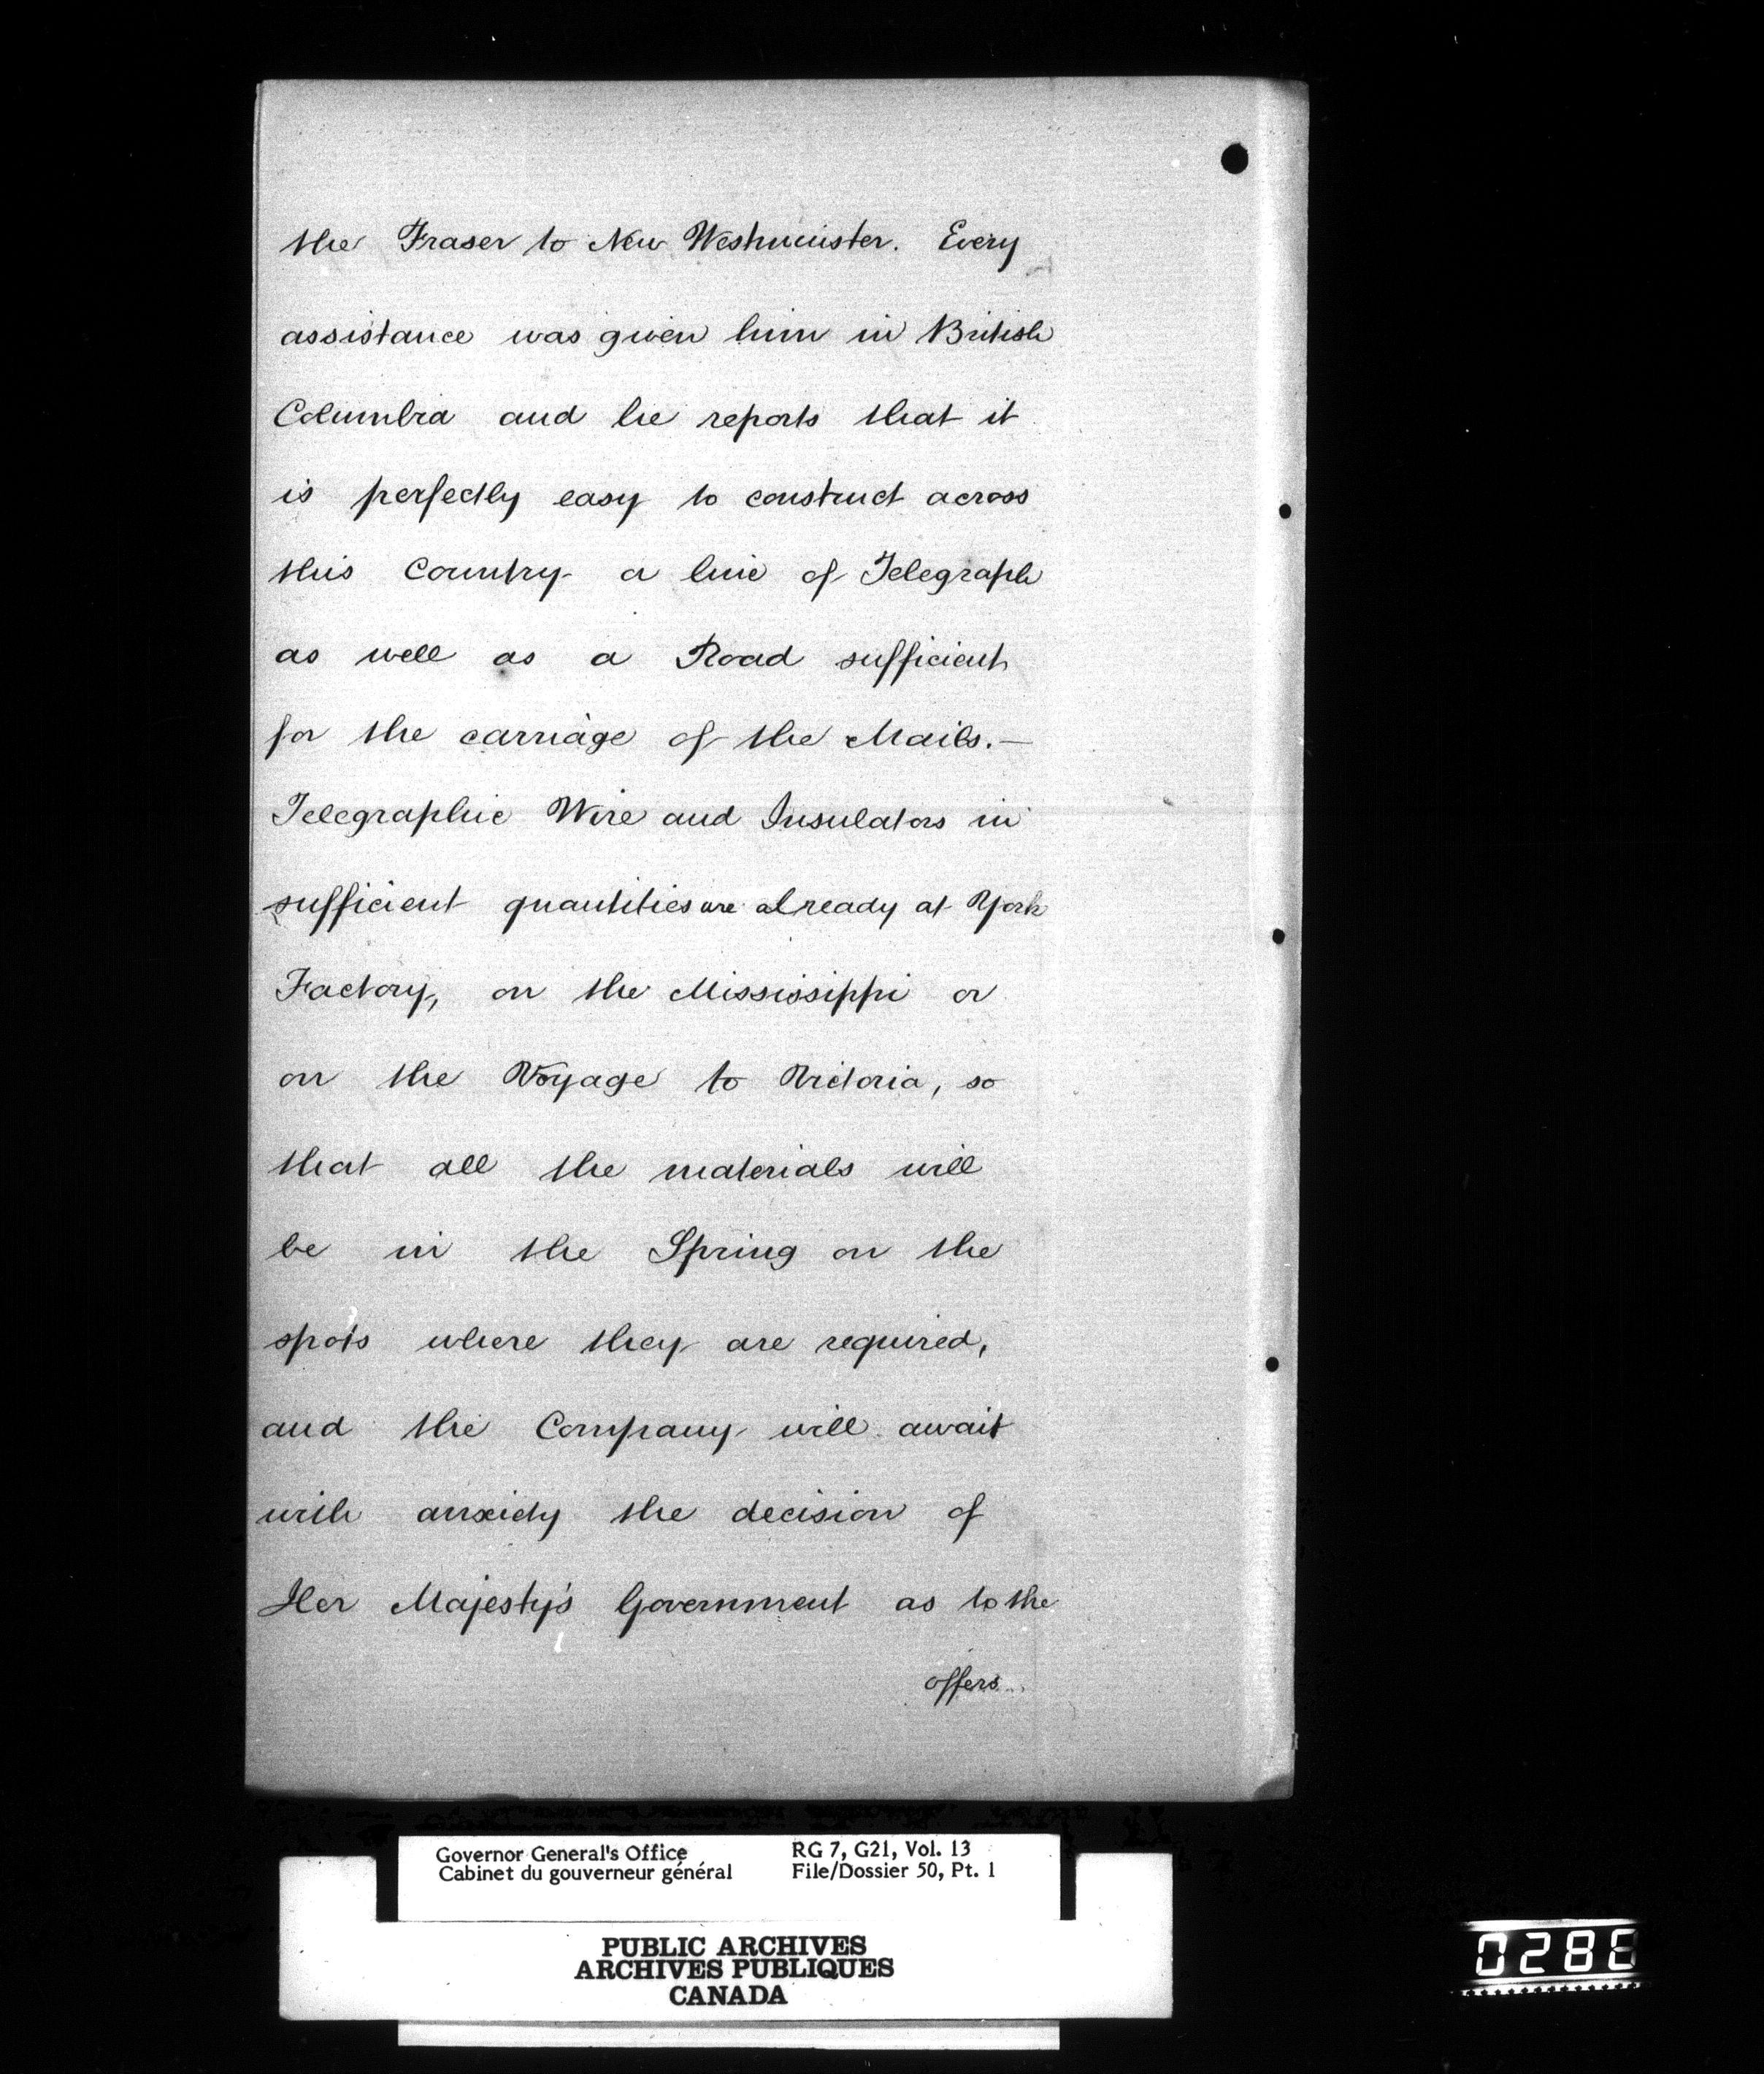 the Fraser to New Westminster. Every
assistance was given him in British
Columbia and he reports that it
is perfectly easy to construct across
this Country a line of Telegraph
as well as a Road sufficient
for the carriage of the Mails.—
Telegraphic Wire and Insulators in
sufficient quantities are already at York
Factory, on the Mississippi or
on the Voyage to Victoria, so
that all the materials will
be in the Spring on the
spots where they are required,
and the Company will await
with anxiety the decision of
Her Majesty's Government as to the
offers
Governor General's Office RG 7, G21, Vol. 13
Cabinet du gouverneur général File/Dossier 50, Pt. 1
PUBLIC ARCHIVES
ARCHIVES PUBLIQUES
CANADA